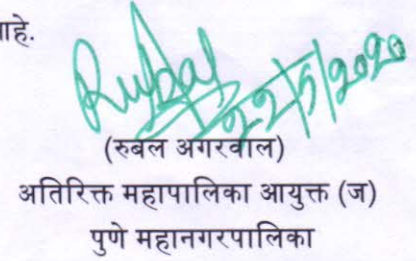 आहे.
Rubal
22/5/2020
(रुबल अगरवाल)
अतिरिक्त महापालिका आयुक्त (ज)
पुणे महानगरपालिका